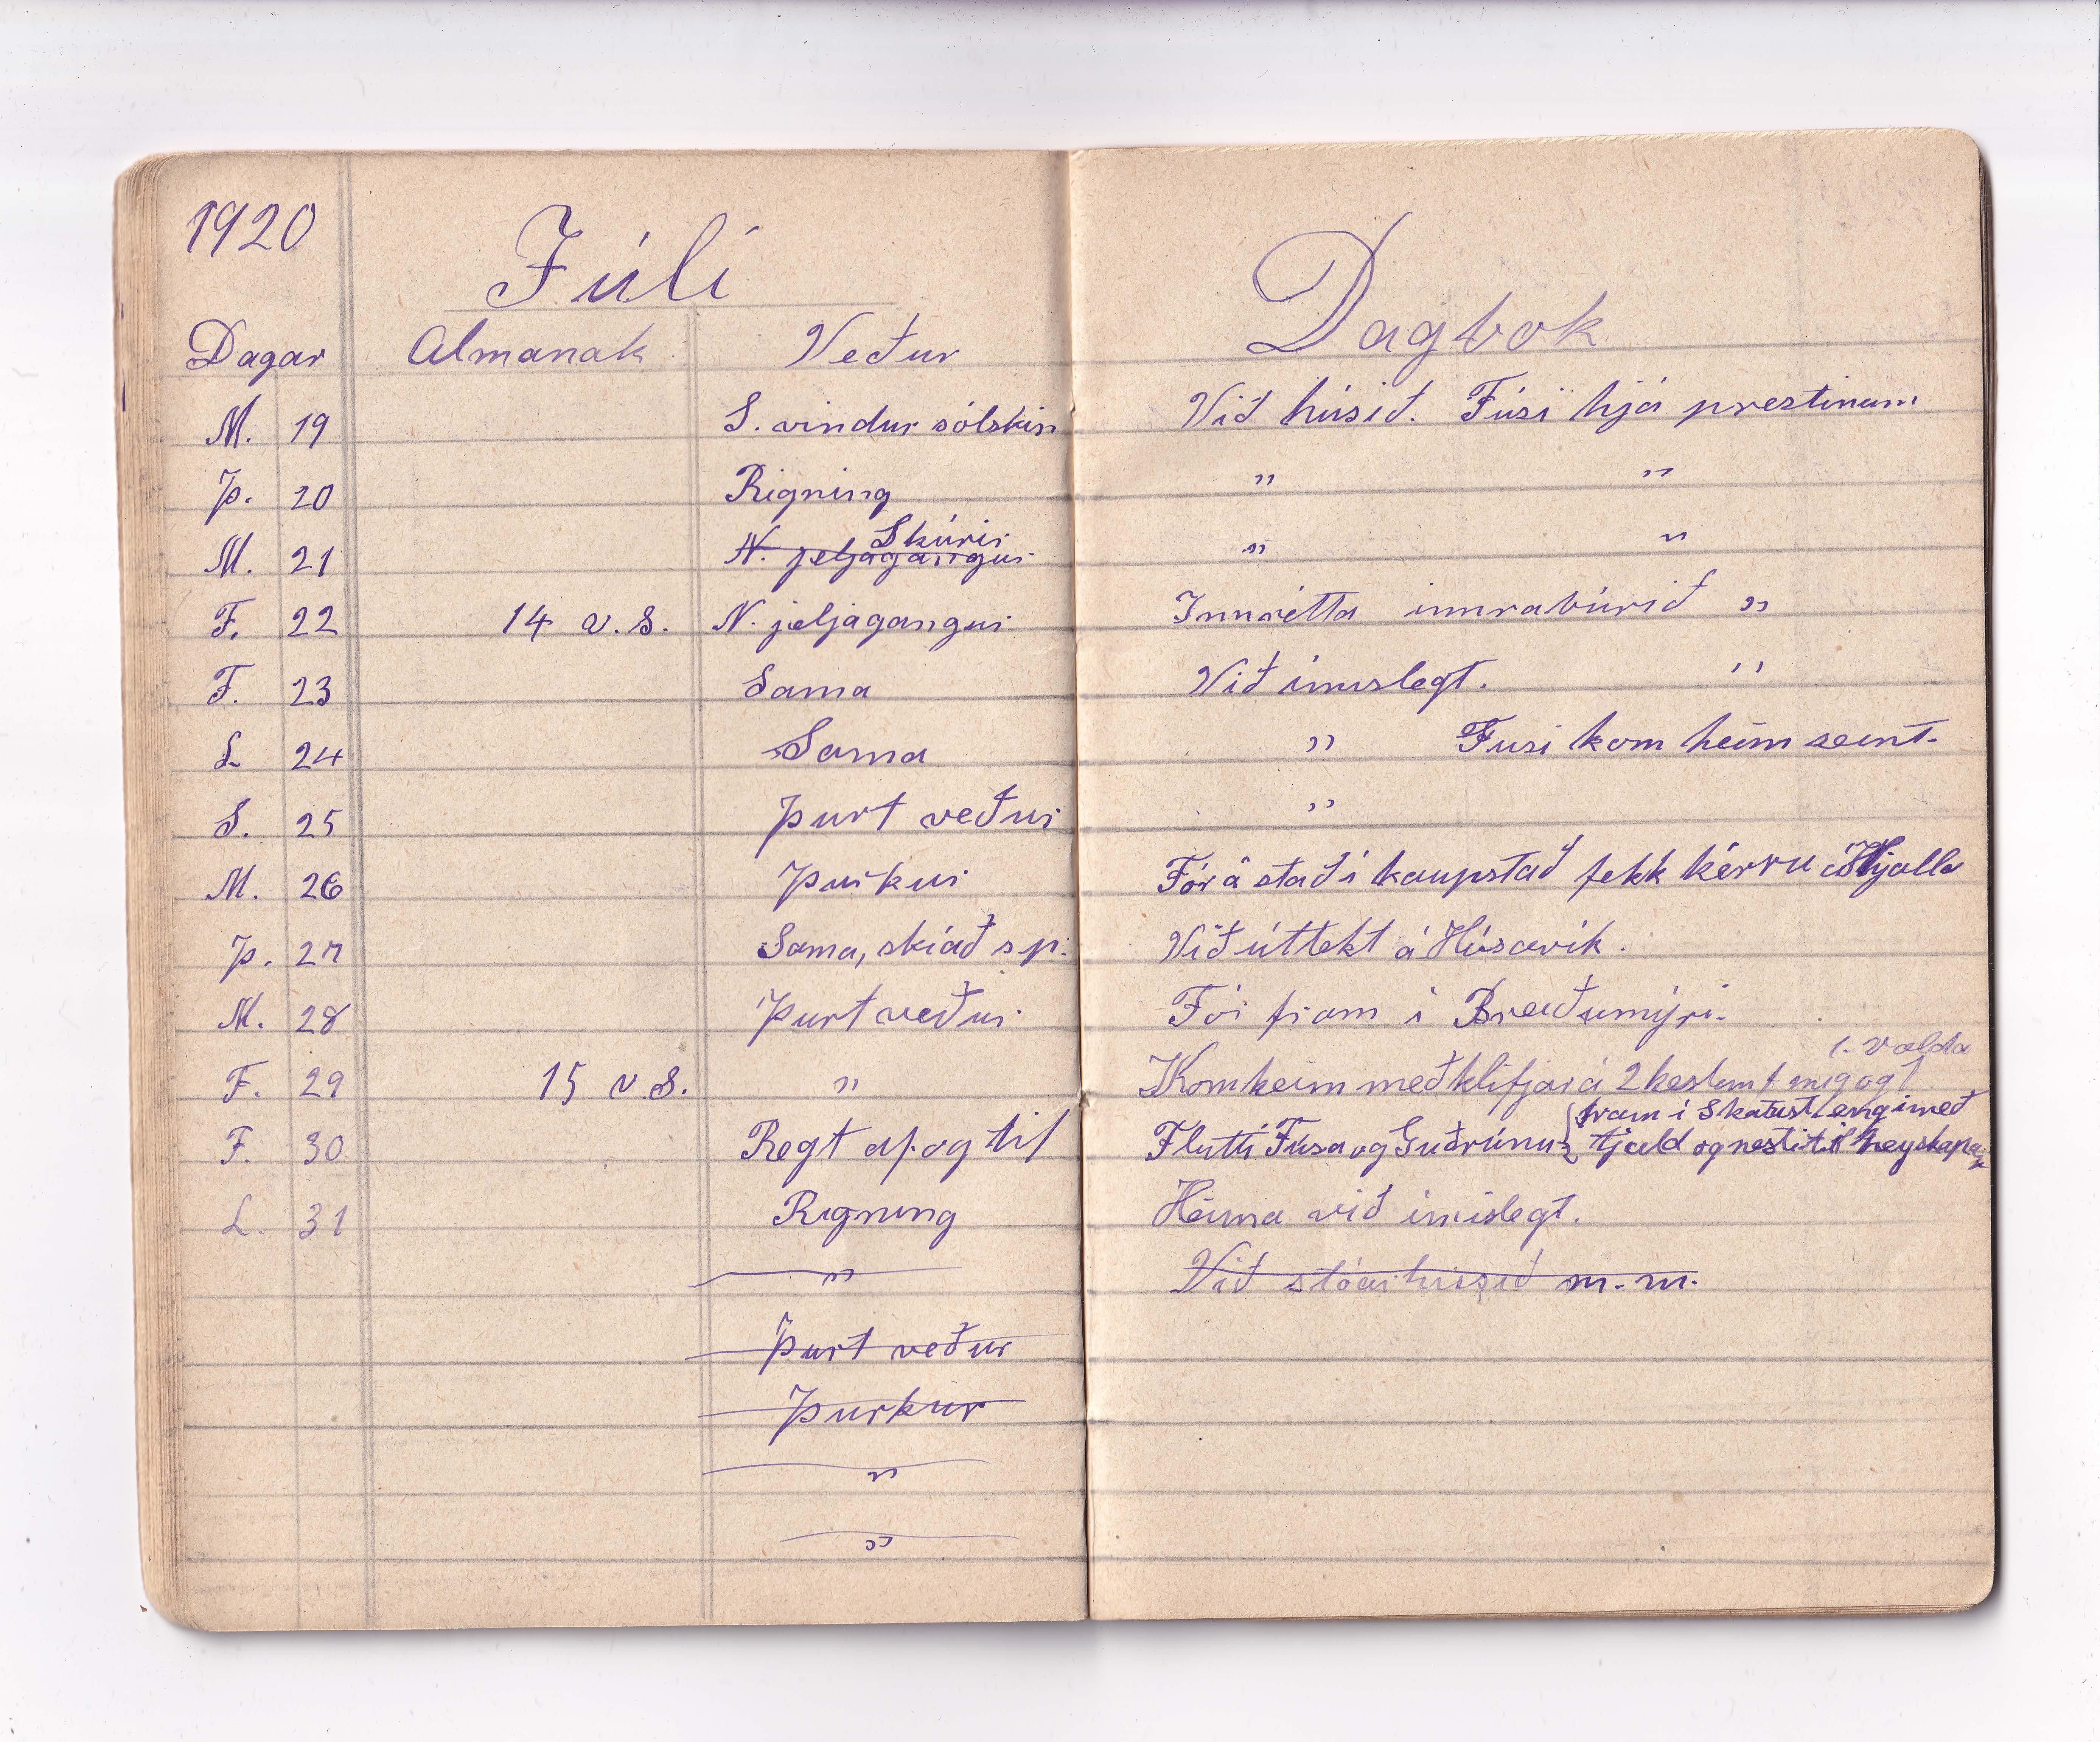 1920
Júlí
Dagbok
Dagar Almanak Veður
M. 19 S. vindur sólskin Við húsið. Fúsi hjá prestinum
Þ. 20 Rigning " "
Skúrir
M. 21 N. jeljagangur " "
F. 22 14 v.s. N. jeljagangur Innrétta innrabúrið "
F. 23 Sama Við ímislegt. "
L 24 Sama " Fusi kom heim seint.
S. 25 Þurt veður "
M. 26 Þurkur Fór á stað í kaupstað fekk kérru á Hjalla
Þ. 27 Sama, skíað s p. Við úttekt á Húsavík.
M. 28 Þurt veður Fór fram í Breiðumýri.
Valda
F. 29 15 v.s. " Kom heim með klifjar á 2 hestum f. mig og
fram í Skatast. engi með
F. 30 Regt af og til Flutti Fúsa og Guðrúnu tjald og nesti til heyskapar
L. 31 Rigning Heima við ímislegt.
" Við stóarhúsið m.m.
Þurt veður
Þurkur
"
"